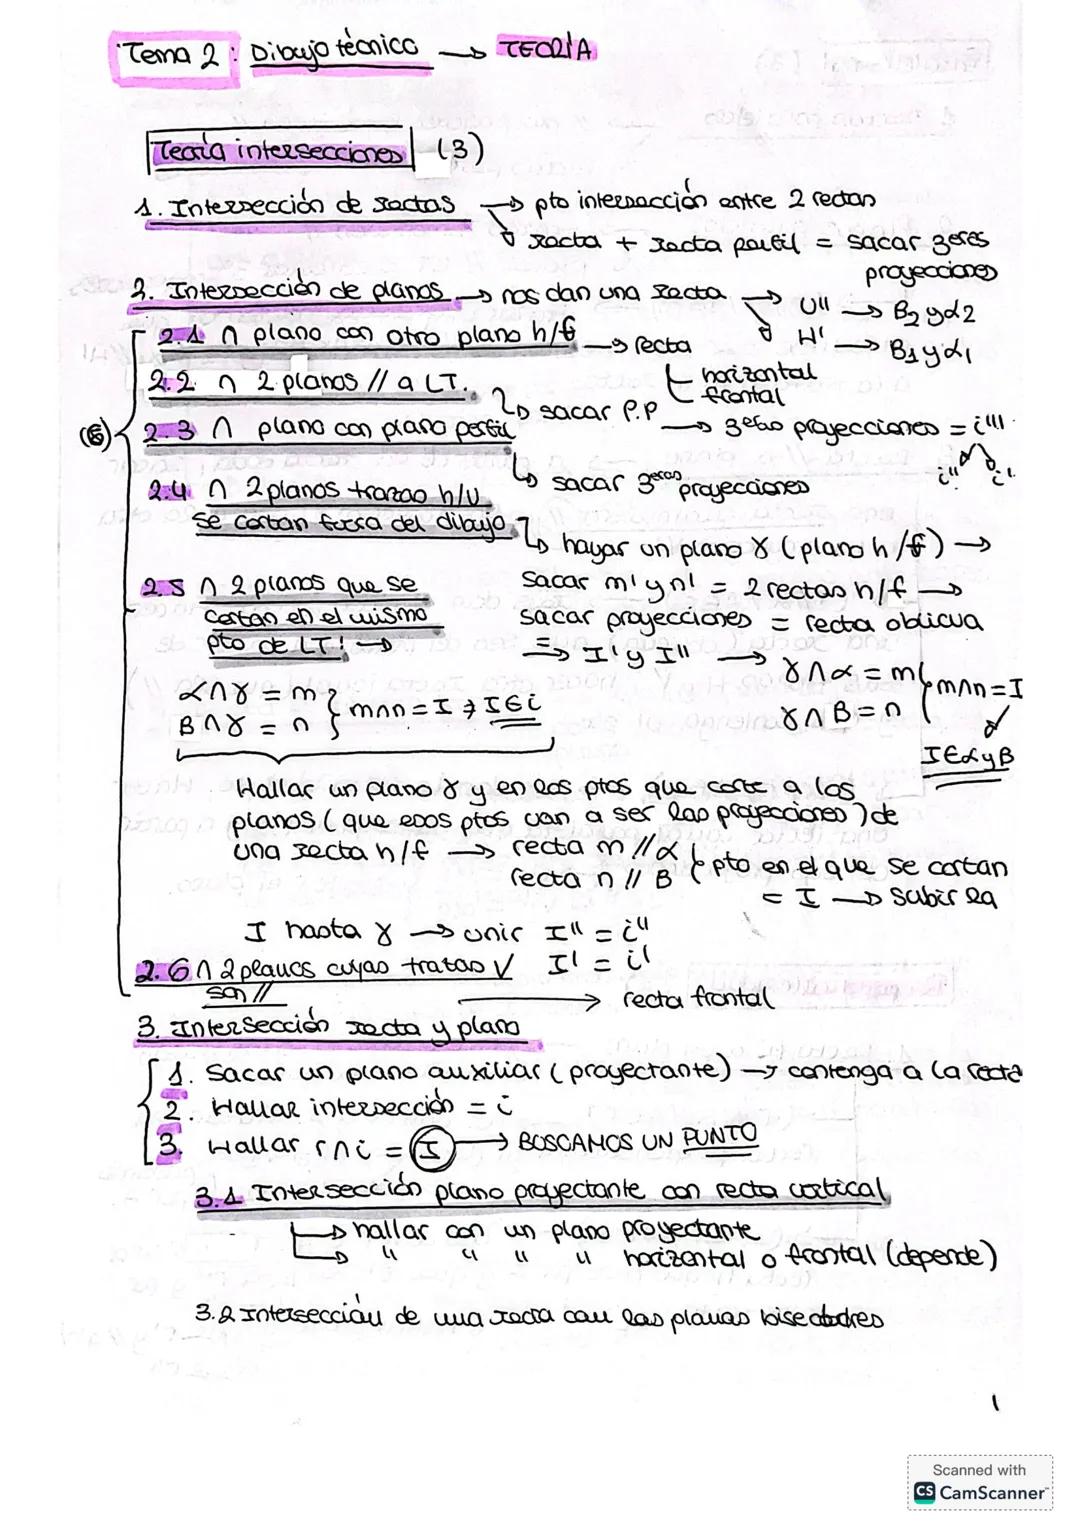 Tema 2: Dibujo técnico → TEORÍA
Teoría intersecciones (3)
1. Intersección de rectas → pto intersección entre 2 rectas
→ recta + recta perfil = sacar 3eras proyecciones
2. Intersección de planos → nos dan una recta → V'' → B2 y α2
→ H' → B1 y α1
(6)
2.1 ∩ plano con otro plano h/f → recta
horizontal
frontal
2.2. ∩ 2 planos // a LT. → sacar P.P → 3eras proyecciones = i'''
i'' i'
2.3 ∩ plano con plano perfil
→ sacar 3eras proyecciones
2.4 ∩ 2 planos trazas h/v
se cortan fuera del dibujo → hayar un plano γ (plano h/f) →
sacar m' y n' = 2 rectas h/f →
sacar proyecciones = recta oblicua
⇒ I' y I'' → γ∩α = m
γ∩B = n } m∩n = I
I∈α y B
2.5 ∩ 2 planos que se
cortan en el mismo
pto de LT! →
α∩γ = m
B∩γ = n } m∩n = I → I∈i
Hallar un plano γ y en los ptos que corte a los
planos (que esos ptos van a ser las proyecciones) de
una recta h/f → recta m // α
recta n // B } pto en el que se cortan
= I → subir la
I hasta γ → unir I'' = i''
I' = i'
2.6 ∩ 2 planos cuyas tratas V
son // → recta frontal
3. Intersección recta y plano
1. Sacar un plano auxiliar (proyectante) → contenga a la recta
2. Hallar intersección = i
3. Hallar r∩i = I → BUSCAMOS UN PUNTO
3.1 Intersección plano proyectante con recta vertical
→ hallar con un plano proyectante
→ " " " " horizontal o frontal (depende)
3.2 Intersección de una recta con los planos bisectores
1
Scanned with
CS CamScanner